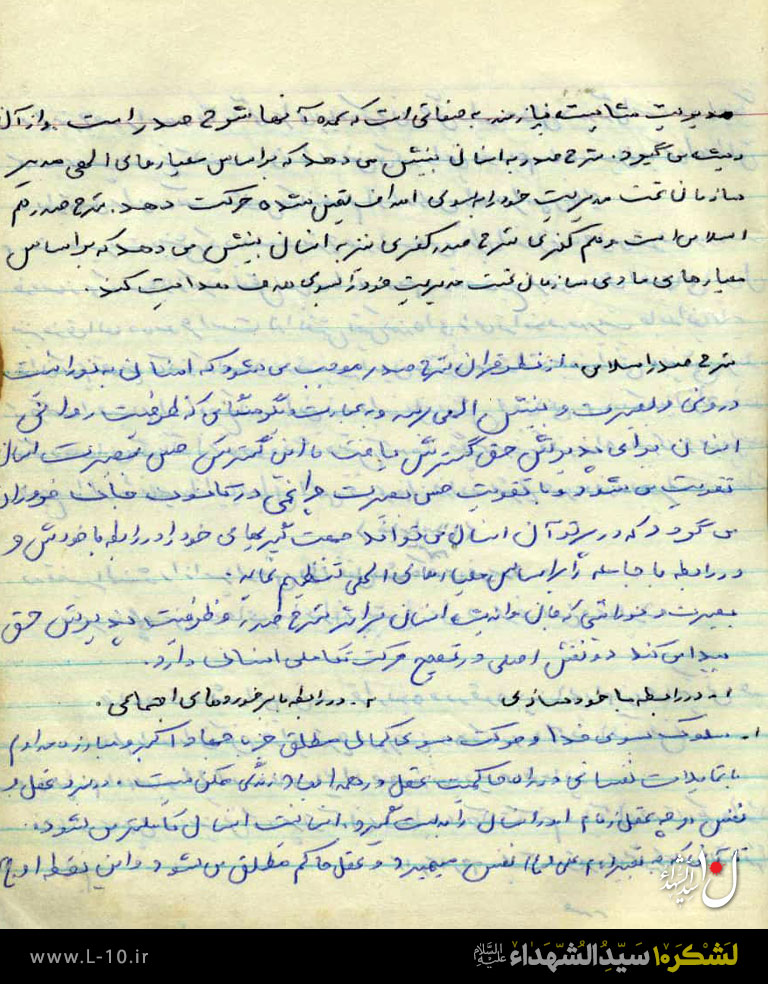 مدیریت مثابیت نیازمند به صفاتی است که عمده آنها شرح صدر است و از آن
ریشه می گیرد. شرح صدر به انسان بینش می دهد که بر اساس معیارهای الهی مدیر
سازمان تحت مدیریت خود را بسوی اهداف تعیین شده حرکت دهد. شرح صدر هم
اسلامی است و هم کفری شرح صدر کفری نیز به انسان بینش می دهد که بر اساس
معیارهای مادی سازمان تحت مدیریت خود را بسوی هدف هدایت کند.
شرح صدر اسلامی، از نظر قرآن شرح صدر موجب می شود که انسان به نورانیت
درونی و بصیرت و بینش الهی برسد و به عبارت دیگر هنگامی که ظرفیت روانی
انسان برای پذیرش حق گسترش یافت با این گسترش حس بصیرت انسان
تقویت می شود و با تقویت حس بصیرت چراغی در کانون جانش فروزان
می گردد که در پرتو آن انسان می تواند جهت گیریهای خود را در رابطه با خودش و
در رابطه با جامعه را بر اساس معیارهای الهی تنظیم نماید.
بصیرت و نورانیتی که جان و اندیشه انسان در اثر شرح صدر و ظرفیت پذیرش حق
پیدا می کند دو نقش اصلی در تصحیح حرکت تکاملی انسان دارد.
۱- در رابطه با خودسازی ۲- در رابطه با برخوردهای اجتماعی.
۱- سلوک بسوی خدا و حرکت بسوی کمال مطلق جز با جهاد اکبر و مبارزه مداوم
با تمایلات نفسانی در راه حاکمیت عقل در همه ابعاد زندگی ممکن نیست. در نبرد عقل و
نفس هر چه عقل زمام امور انسان را بدست گیرد، انسانیت انسان کاملتر می شود.
تا آنجا که به تعبیر امام علی (ع) نفس میمیرد و عقل حاکم مطلق می شود و این نقطه اوج
ل ۱۰ سیدالشهداء
www.L-10.ir
لَشکَر۱۰ سَیِّدُالشُّهَداء عَلَیهِ السَّلام